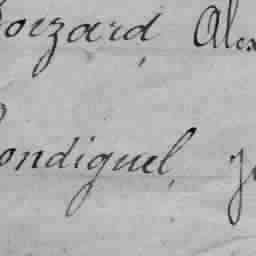 oezard, Alex
ondiguel, J